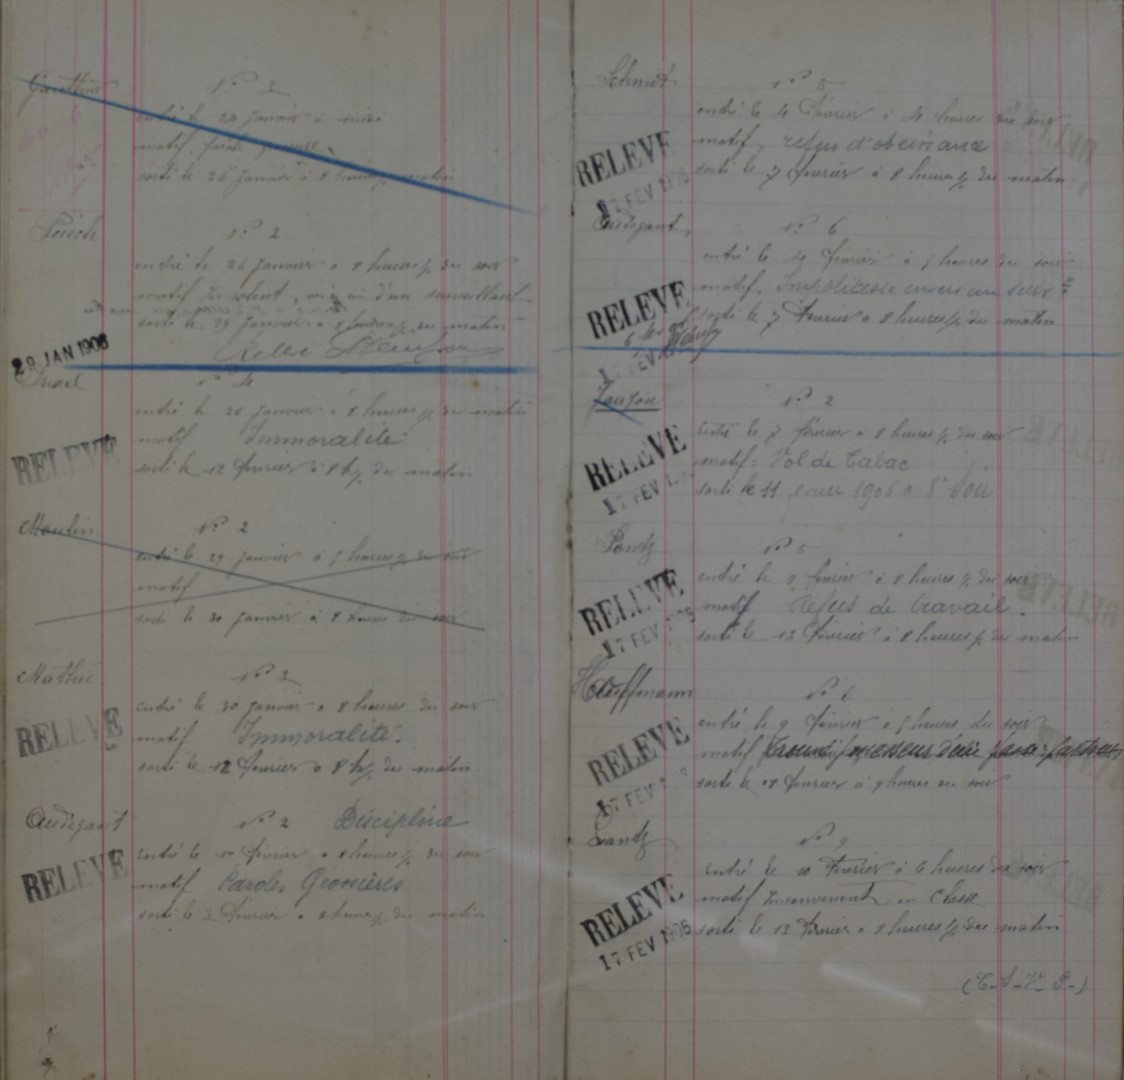 N° 3
entré le 24 Janvier à midi
motif, parole grossière.
sorti le 26 Janvier à 8 heures matin
N° 2
entré le 26 Janvier à 8 heures ½ du soir
motif Insolent, vis à vis d'un surveillant
sorti le 29 Janvier à 8 heures ½ du matin
Relevé
29 JAN 1906
N° 4
entré le 28 Janvier à 8 heures ½ du matin
motif Immoralité
RELEVE
sorti le 12 fevrier à 8 h ½ du matin
Moulin N° 2
entré le 29 janvier à 5 heures ½ du soir
motif
sorti le 30 janvier à 8 heures du soir
Mathie N° 3
entré le 30 janvier à 8 heures du soir
RELEVE
motif Immoralité.
sorti le 12 Fevrier à 8 h ½ du matin
Audigant N° 2 Discipline
entré le Fevrier à 8 heures ½ du soir
RELEVE
motif Paroles Grossières
sorti le 3 Fevrier à 8 heures ½ du matin
Schmit N° 5
entré le 4 Fevrier à 4 heures du soir
RELEVE
motif, refus d'obeissance
sorti le 7 fevrier à 8 heures ½ du matin
17 FEV 1906
Audigant, N° 6
entré le 4 Fevrier à 5 heures du soir
RELEVE
motif, Impolitesse envers un surv^t
sorti le 7 Fevrier à 8 heures ½ du matin
17 FEV
N° 2
entré le 7 fevrier à 8 heures ½ du soir
RELEVE
motif = Vol de Tabac
17 FEV
sorti le 11 1906 à 8h soir
N° 5
entré le 8 fevrier à 8 heures ½ du soir
RELEVE
motif Refus de travail.
17 FEV 1906
sorti le 13 Fevrier à 8 heures ½ du matin
Hauffmann N° 6
entré le 9 Fevrier à 5 heures du soir
RELEVE
motif
17 FEV
sorti le Fevrier à 9 heures du soir
Lantz N° 9
entré le 10 Fevrier à 6 heures du soir
RELEVE
motif Inconvenant en Classe
17 FEV 1906
sorti le 13 Fevrier à 8 heures ½ du matin
(T-S-V-P-)